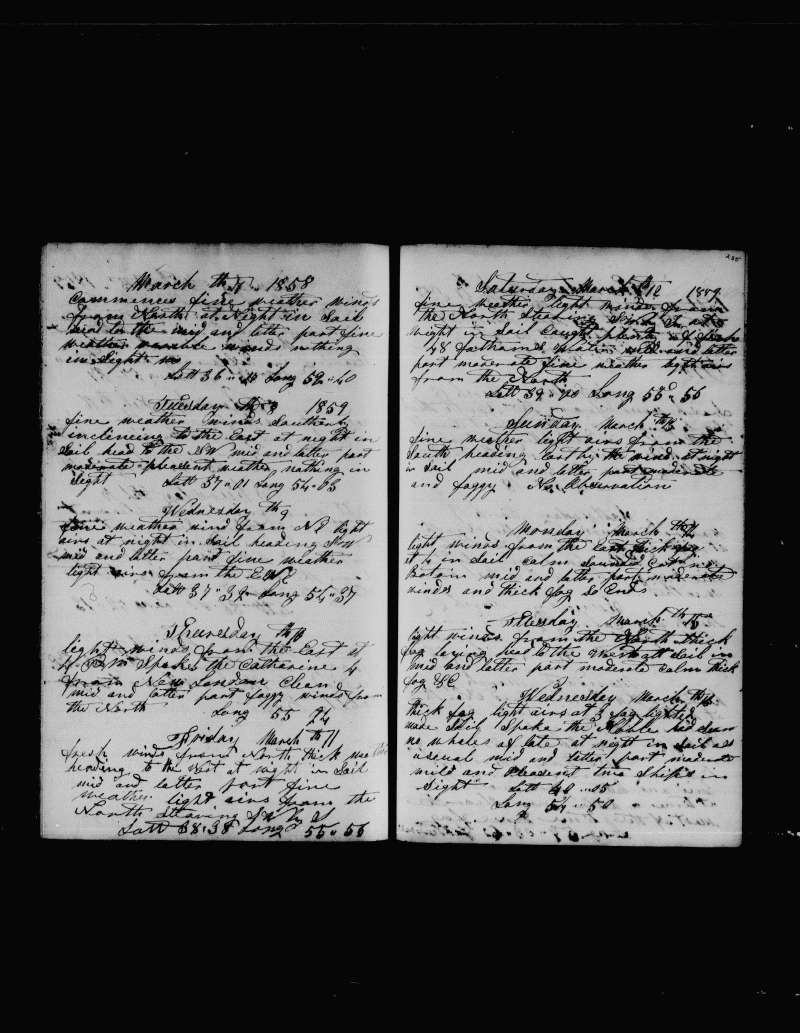 March th 7 1858
Commences fine weather winds
from North at Night in Sail
head to the mid and latter part fine
weather variable winds nothing
in Sight
Latt 36 Long 52 " 40
Tuesday th 8 1859
fine weather winds Southerly
to the East at night in
Sail head to the NW mid and latter part
moderate pleasent weather nothing in
Sight Latt 37 " 01 Long 54 " 03
Wednesday th 9
fine weather wind from NE light
airs at night in Sail heading
mid and latter part fine weather
light airs from the
Latt 37 " 32 Long 54 " 37
Thursday th 10
light winds from the East at
4 P m Spoke the Catharine
from New London Clean
mid and latter part foggy winds from
the North Long 55 24
Friday March th 11
fresh winds from North thick
heading to the West at night in Sail
mid and latter part fine
weather light airs from the
North Stearing
Latt 38 " 38 Long 55 " 56
235
Saturday March th 12 1859
fine weather light winds from
the North Stearing
Night in Sail
48 fathams and latter
part moderate fine weather light airs
from the North
Latt 39 " 20 Long 55 " 56
Sunday March th 13
fine weather light airs from the
South heading the wind at night
in Sail mid and latter part moderate
and foggy No Observation
Monday March th 14
light winds from the East thick fog
at 4 in Sail calm Sounded
Botam mid and latter part moderate
winds and thick fog So Ends
Tuesday March th 15
light winds from the North thick
fog laying head to the Sail in
mid and latter part moderate calm thick
fog &C
Wednesday March th 16
thick fog light airs at fog lighted
made Sail Spoke the had Seen
no whales of late at night in Sail as
useual mid and latter part moderate
mild and Pleasent two Ships in
Sight Latt 40 " 05
Long 54 " 50